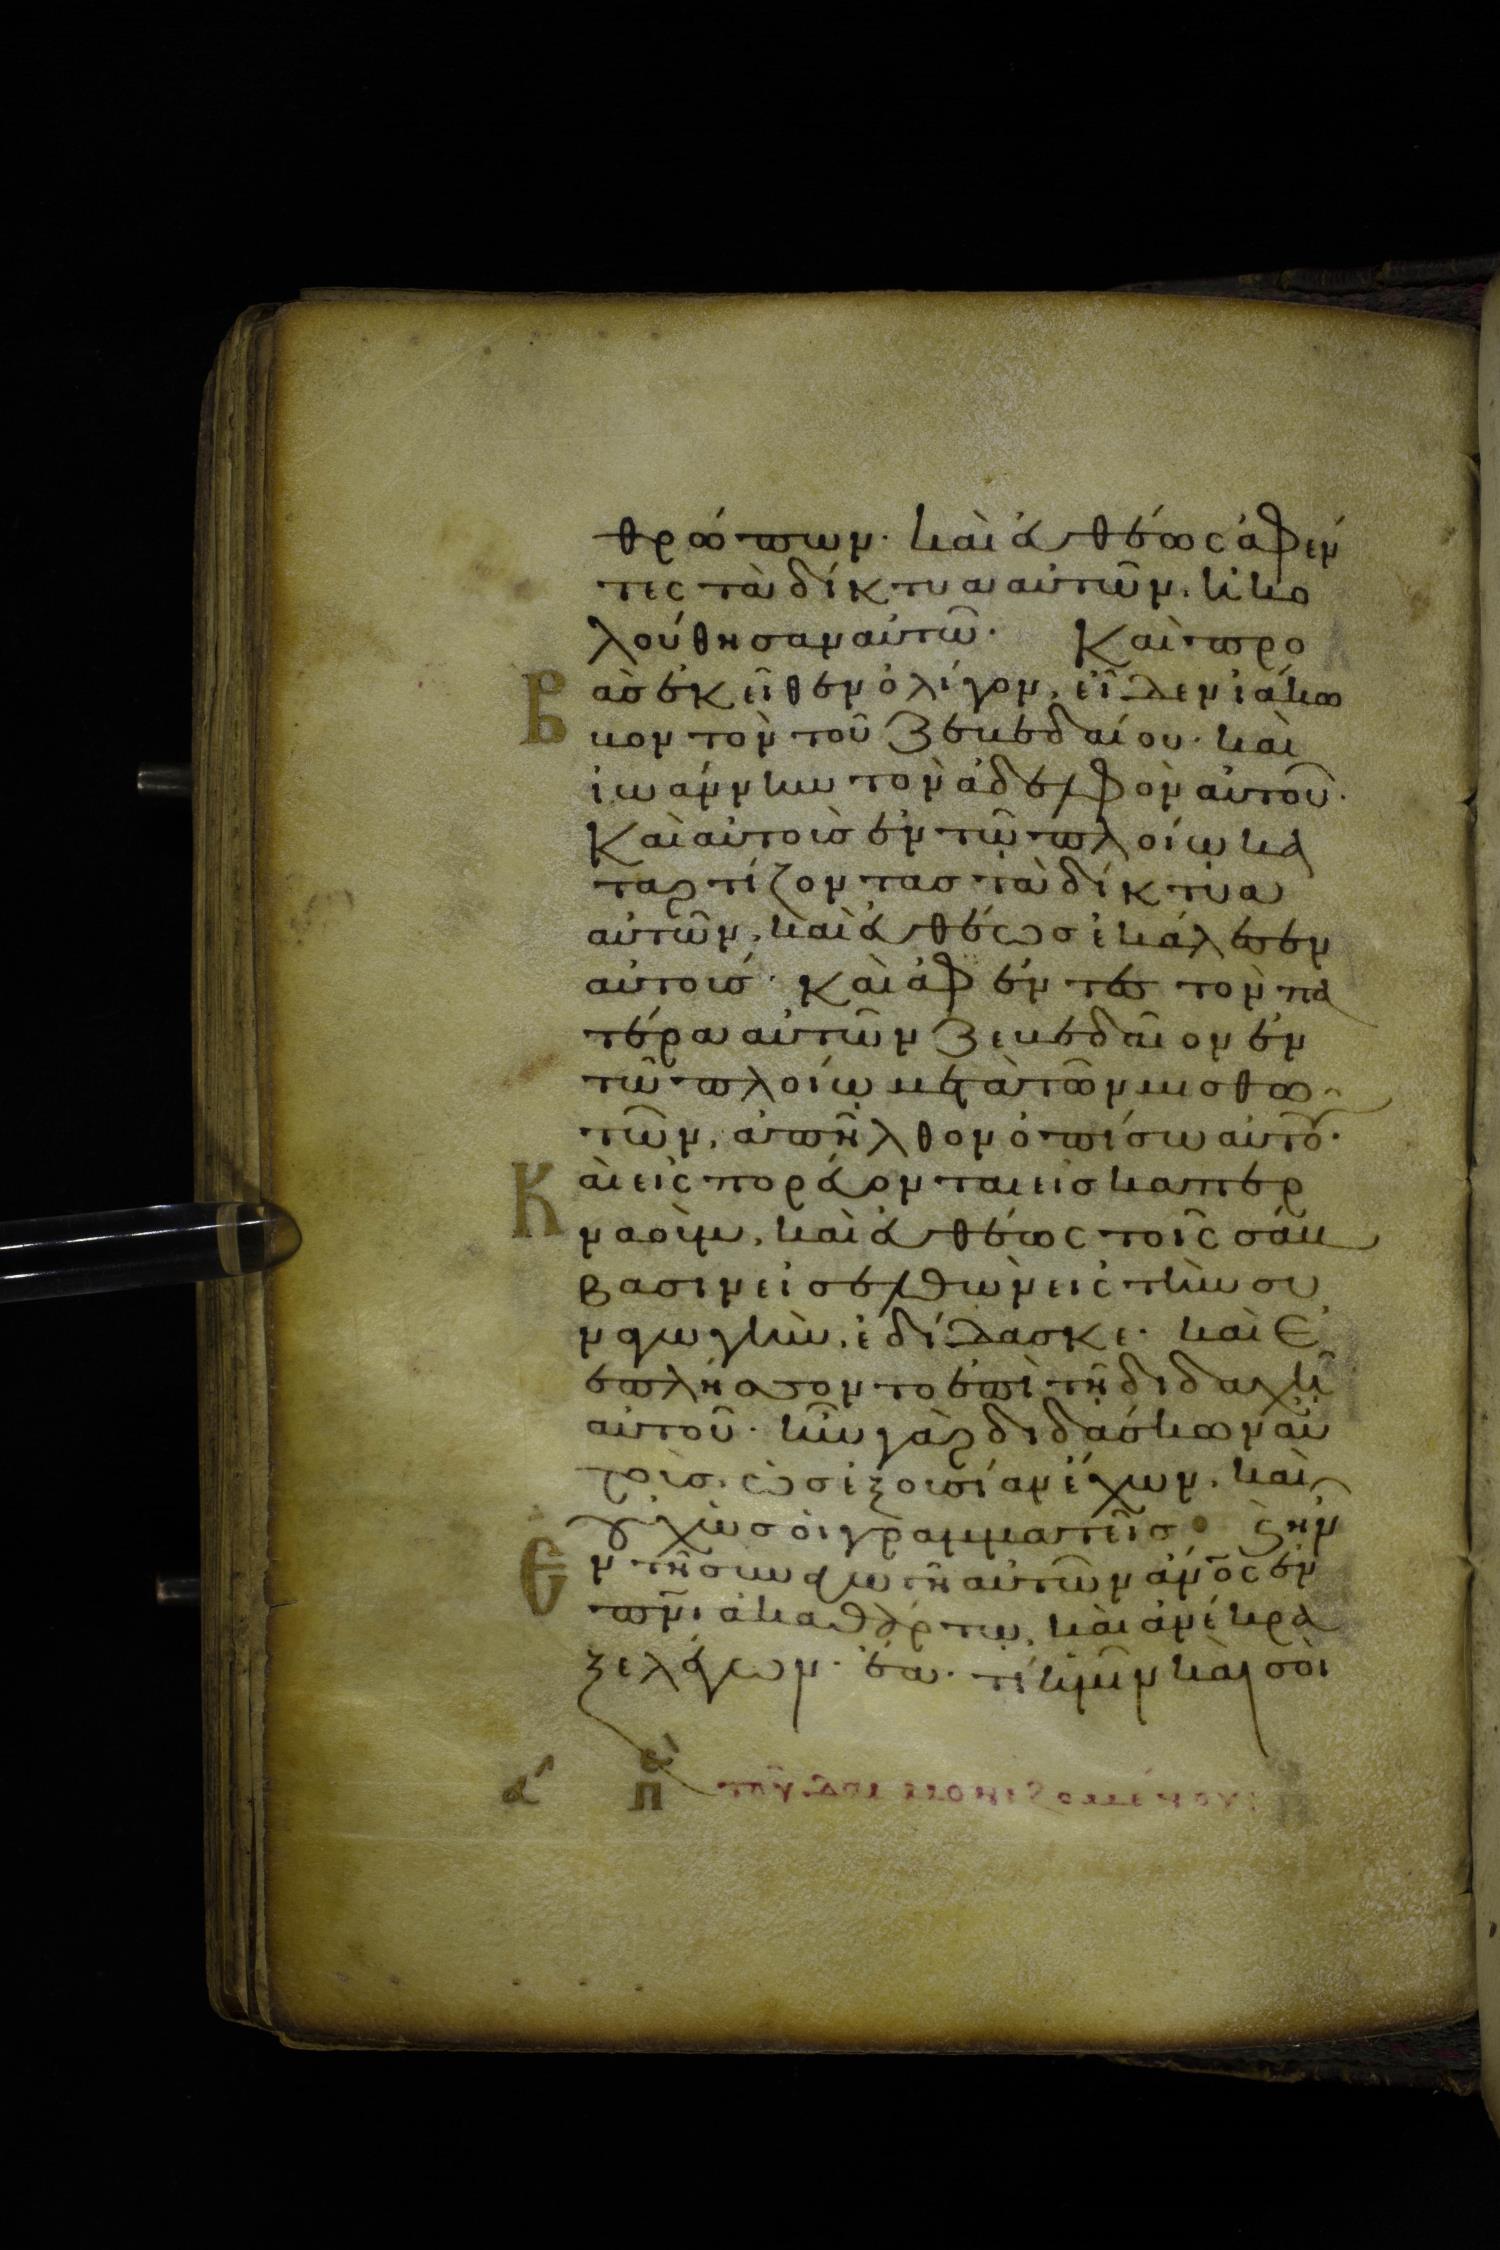 θρώπων· καὶ εὐθέως ἀφέν
τες τὰ δίκτυα αὐτῶν, ἠκο
λούθησαν αὐτῶ· Καὶ προ
βὰσ ἐκεῖθεν ὀλίγον, εἶδεν ἰάκω
βον τὸν τοῦ Ζεβεδαίου· καὶ
ἰωάννην τὸν ἀδελφὸν αὐτοῦ·
Καὶ αὐτοὺσ ἐν τῶ πλοίω κα
ταρτίζοντασ τὰ δίκτυα
αὐτῶν, καὶ εὐθέωσ ἐκάλεσεν
αὐτούσ· καὶ ἀφέντεσ τὸν πα
τέρα αὐτῶν Ζεβεδαῖον ἐν
τῶ πλοίω μετὰ τῶν μισθω
τῶν, ἀπῆλθον ὀπίσω αὐτοῦ·
Κ αὶ εἰς πορεύονται εἰσ καπερ
ναοὺμ, καὶ εὐθέως τοῖς σάβ
βασιν εἰσελθὼν εἰς τὴν συ
ναγωγὴν, ἐδίδασκε· καὶ ἐ
ξεπλήσσοντο ἐπὶ τῆ διδαχῆ
αὐτοῦ· ἦν γὰρ διδάσκων αὐ
τοὺσ, ὡσ ἐξουσίαν ἔχων, καὶ
οὐχ ὡσ οἱ γραμματεῖσ Καὶ ἦν
Ε ν τῆ συναγωγῆ αὐτῶν ἄνος ἐν
πνι ἀκαθάρτω, καὶ ἀνέκρα
ξε λέγων· ἔα· τί ἡμῖν καὶ σοὶ